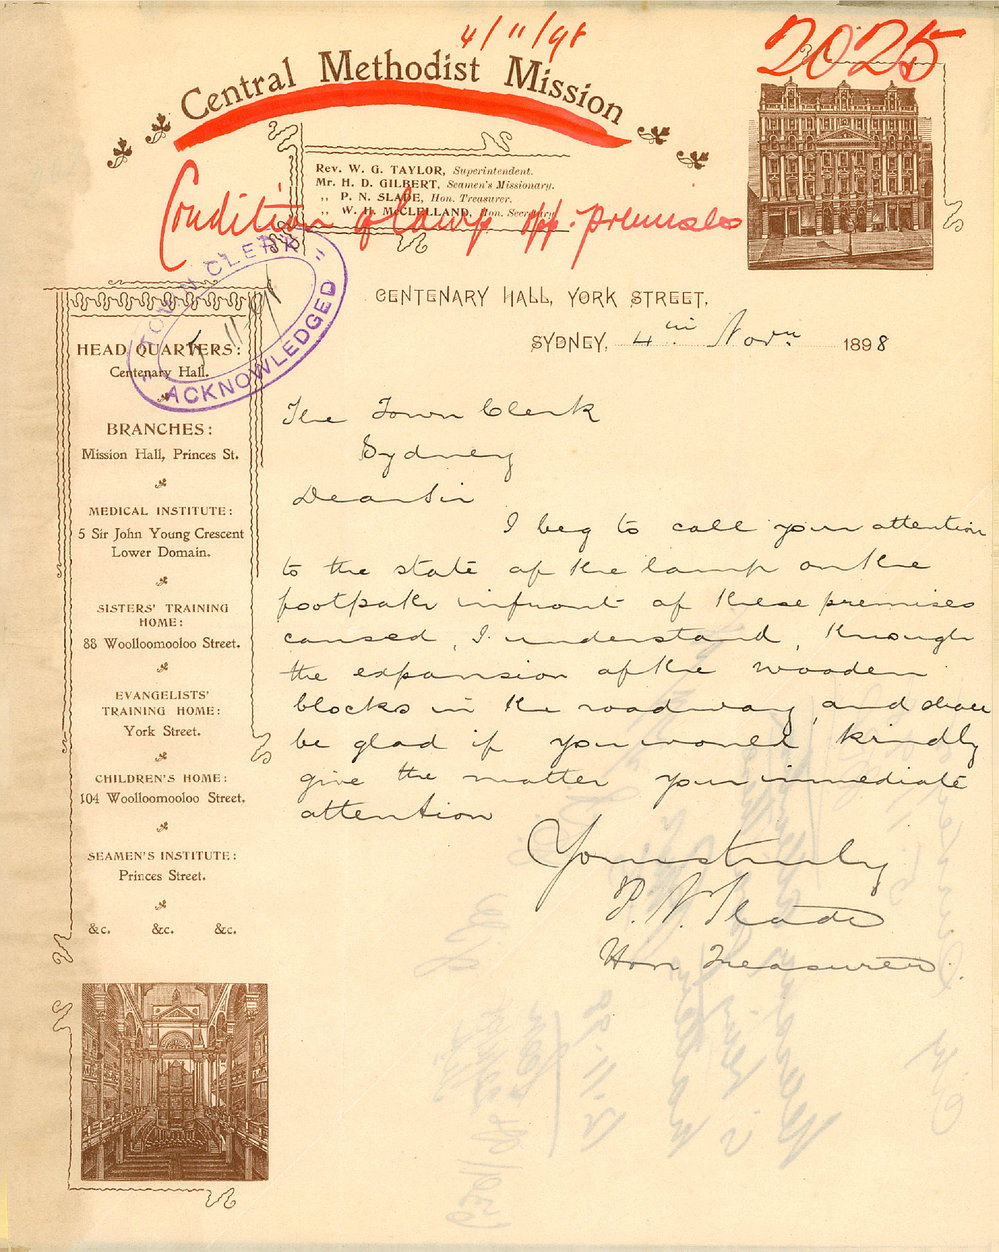 4/11/98
2025
Central Methodist Mission
Rev. W. G. TAYLOR, Superintendent.
Mr. H. D. GILBERT, Seamen's Missionary.
„ P. N. SLADE, Hon. Treasurer.
„ W. H. McCLELLAND, Hon. Secretary
Condition of lamp opp. premises
"TOWN CLERK"
5/11/98
ACKNOWLEDGED
CENTENARY HALL, YORK STREET,
SYDNEY, 4th Novr. 1898
HEAD QUARTERS:
Centenary Hall.
BRANCHES:
Mission Hall, Princes St.
MEDICAL INSTITUTE:
5 Sir John Young Crescent
Lower Domain.
SISTERS' TRAINING
HOME:
88 Woolloomooloo Street.
EVANGELISTS'
TRAINING HOME:
York Street.
CHILDREN'S HOME:
104 Woolloomooloo Street.
SEAMEN'S INSTITUTE:
Princes Street.
&c. &c. &c.
The Town Clerk
Sydney
Dear Sir
I beg to call your attention
to the state of the lamp on the
footpath infront of these premises
caused, I understand, through
the expansion of the wooden
blocks in the roadway, and shall
be glad if you would kindly
give the matter your immediate
attention
Yours truly
P. N. Slade
Hon Treasurer.